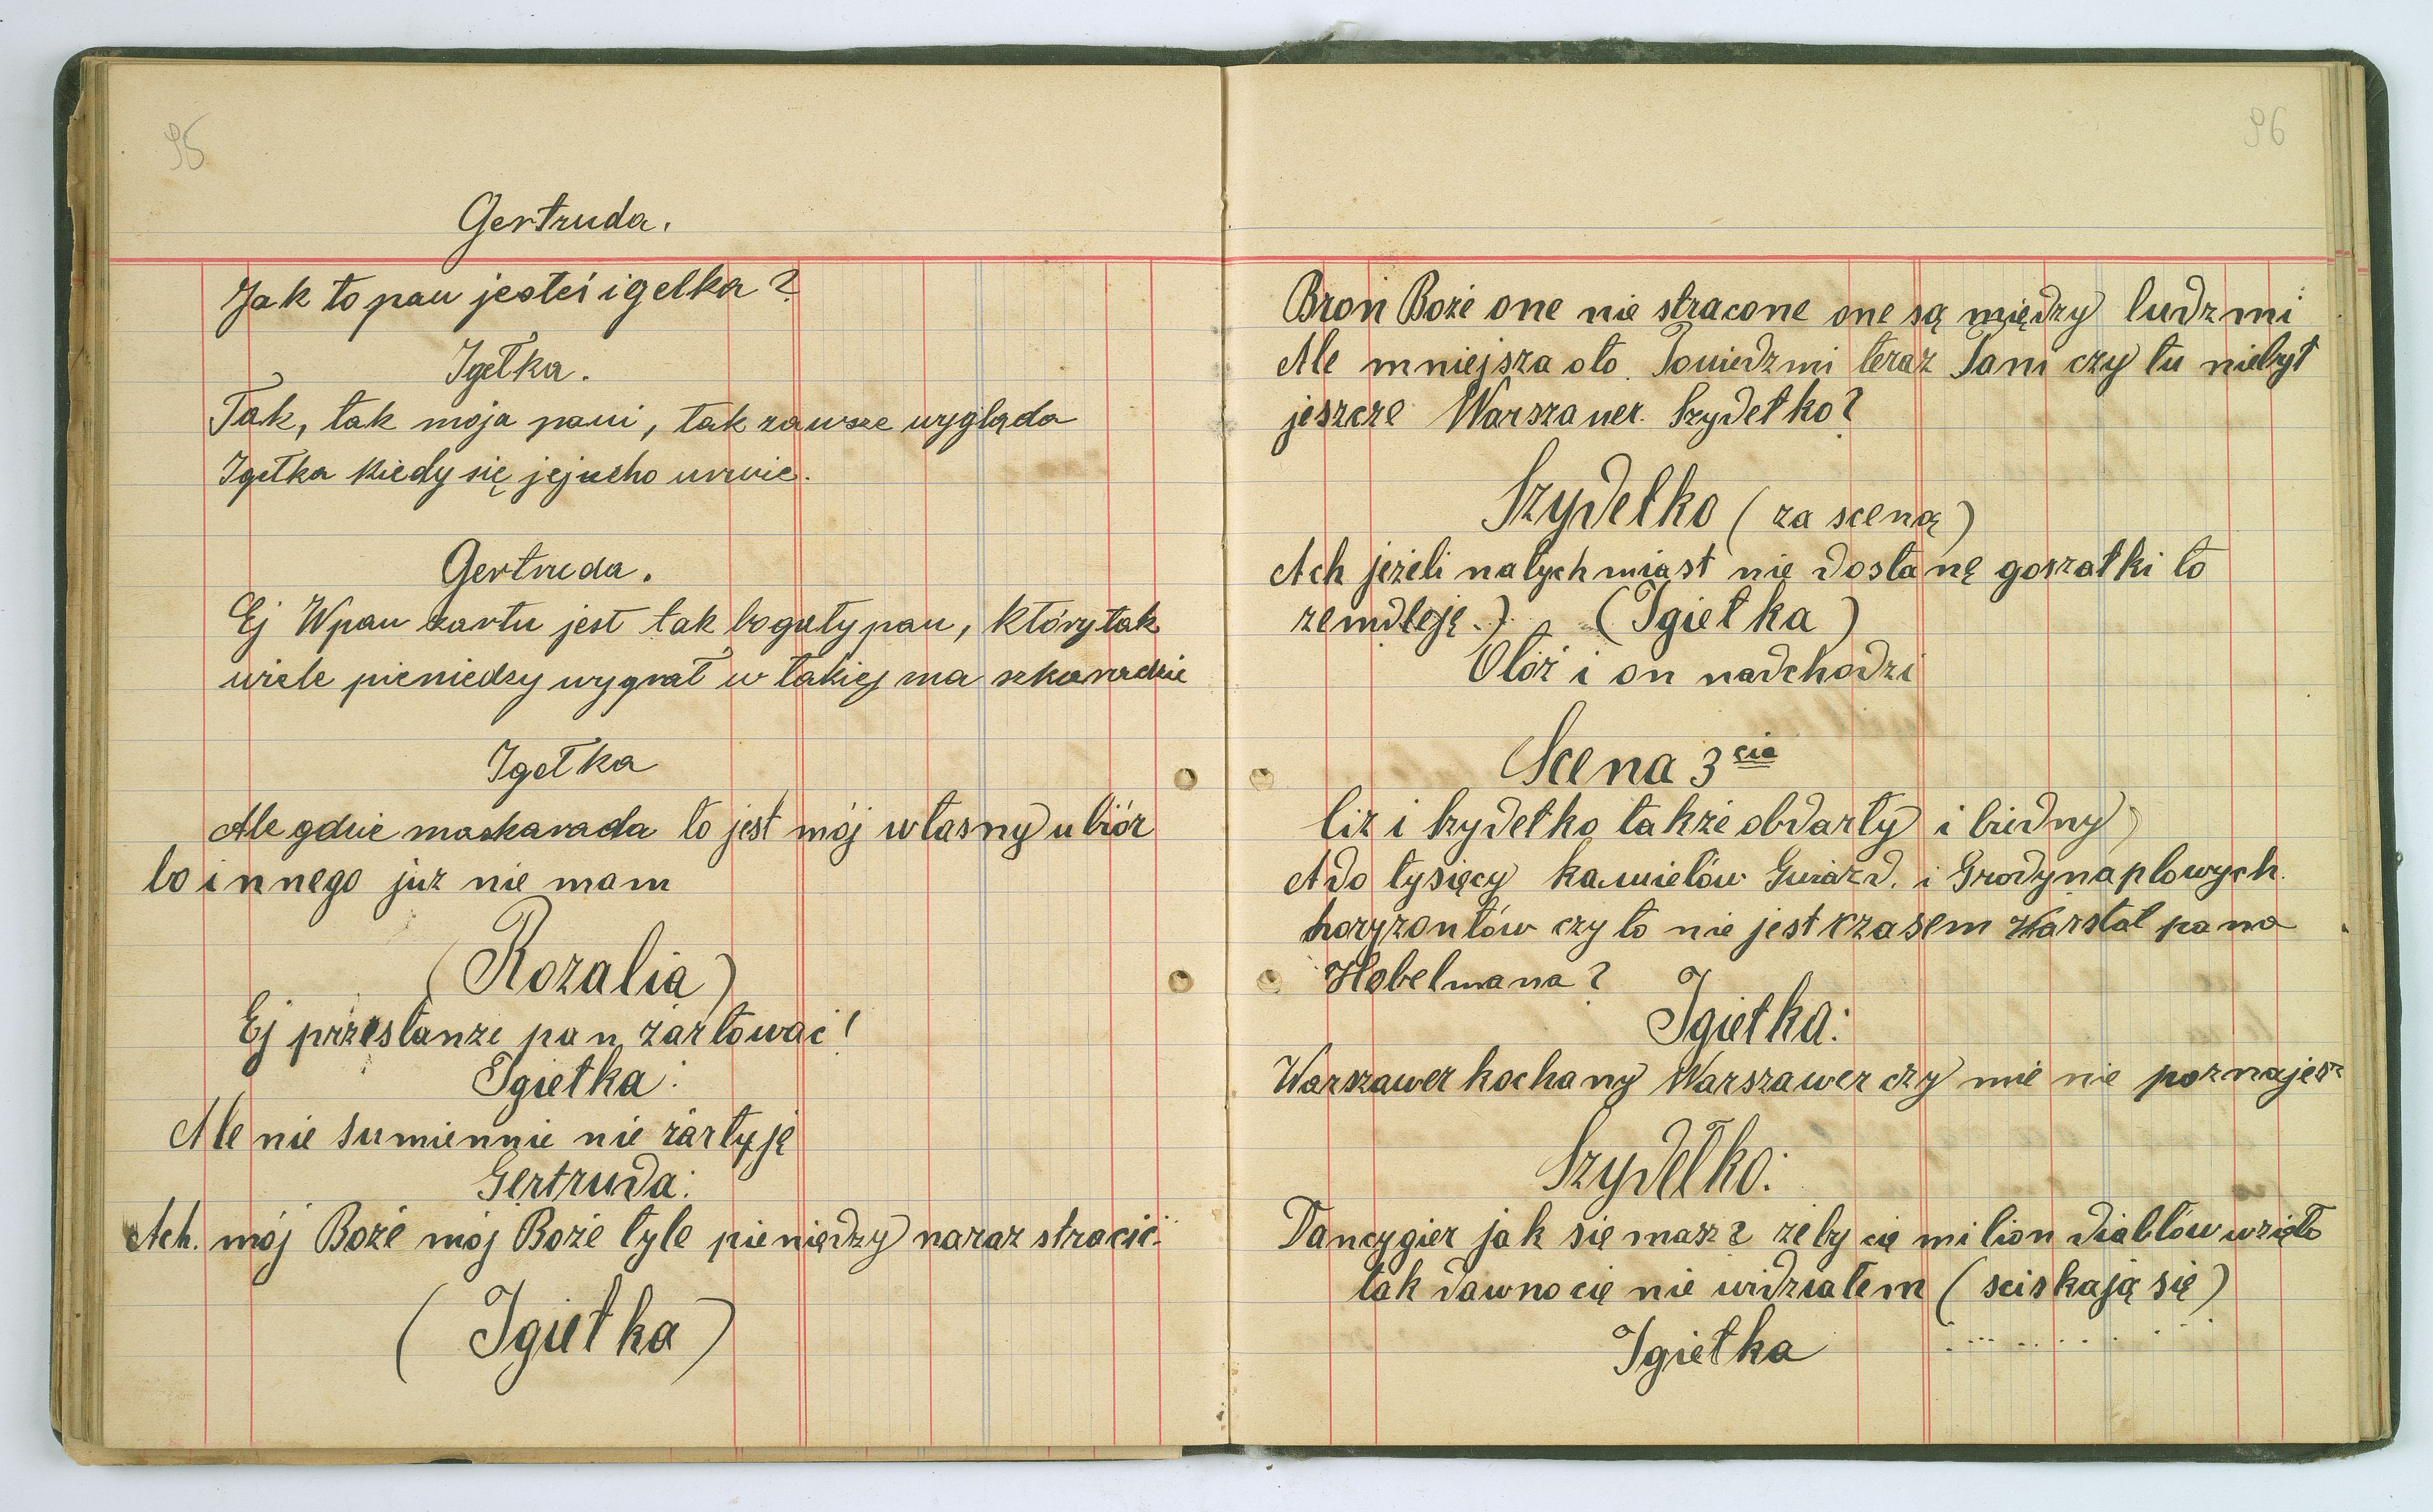 95
Gertruda.
Jak to pan jesteś igelka?
Igełka.
Tak, tak moja pani, tak zawsze wygląda
Igełka kiedy się jej ucho urwie.
Gertruda.
Ej Wpan żartu jest tak bogaty pan, który tak
wiele pieniedzy wygrał w takiej ma szkaradzie
Igełka
Ale gdzie maskarada to jest mój własny ubiór
bo innego już nie mam
(Rozalia)
Ej przestanże pan żartować!
Igiełka:
Ale nie sumiennie nie żartyję
Gertruda:
Ach. mój Boże mój Boże tyle pieniędzy naraz stracić.
(Igiełka)
96
Broń Boże one nie stracone one są między ludzmi
Ale mniejsza oto. Powiedzmi teraz Pani czy tu niebył
jeszcze Warszawer. Szydełko?
Szydełko (za sceną)
Ach jeżeli natychmiast nie dostanę gorzałki to
zemdleję.) (Igiełka)
Otóż i on nadchodzi
Scena 3cia
Ciż i Szydełko także obdarty i biedny)
Ado tysięcy kamielów Gwiazd. i Grodynaplowych.
horyzontów czy to nie jest czasem Warstat pana
Hobelmana?
Igiełka:
Warszawer kochany Warszawer czy mie nie poznajesz
Szydełko:
Dancygier jak się masz? żeby cię milion diabłów wzięło
tak dawno cię nie widziałem (sciskają się)
Igiełka